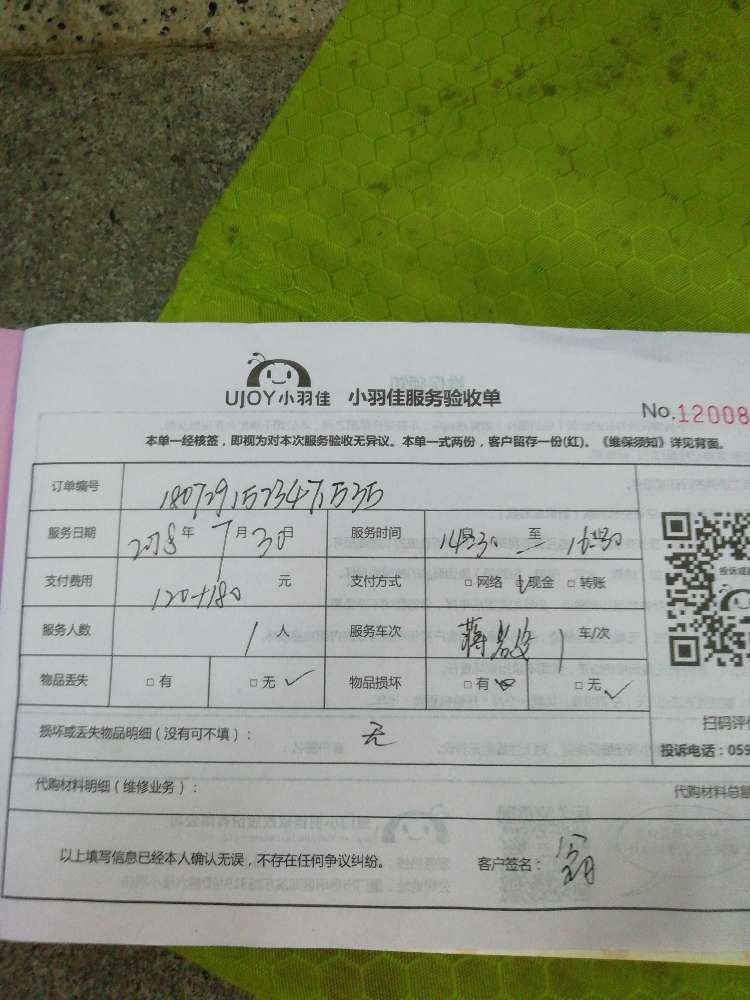 UJOY小羽佳 小羽佳服务验收单
No.12008
本单一经核签，即视为对本次服务验收无异议。本单一式两份，客户留存一份(红)。《维保须知》详见背面。
订单编号 180729152347535
服务日期 2018年7月30日 服务时间 14:30 至 16:30
支付费用 120+180 元 支付方式 □网络 □现金 □转账
服务人数 1人 服务车次 1 车/次
物品丢失 □有 □无✓ 物品损坏 □有 □无✓
损坏或丢失物品明细（没有可不填）： 无
扫码评价
投诉电话：059
代购材料明细（维修业务）： 代购材料总
以上填写信息已经本人确认无误，不存在任何争议纠纷。 客户签名：